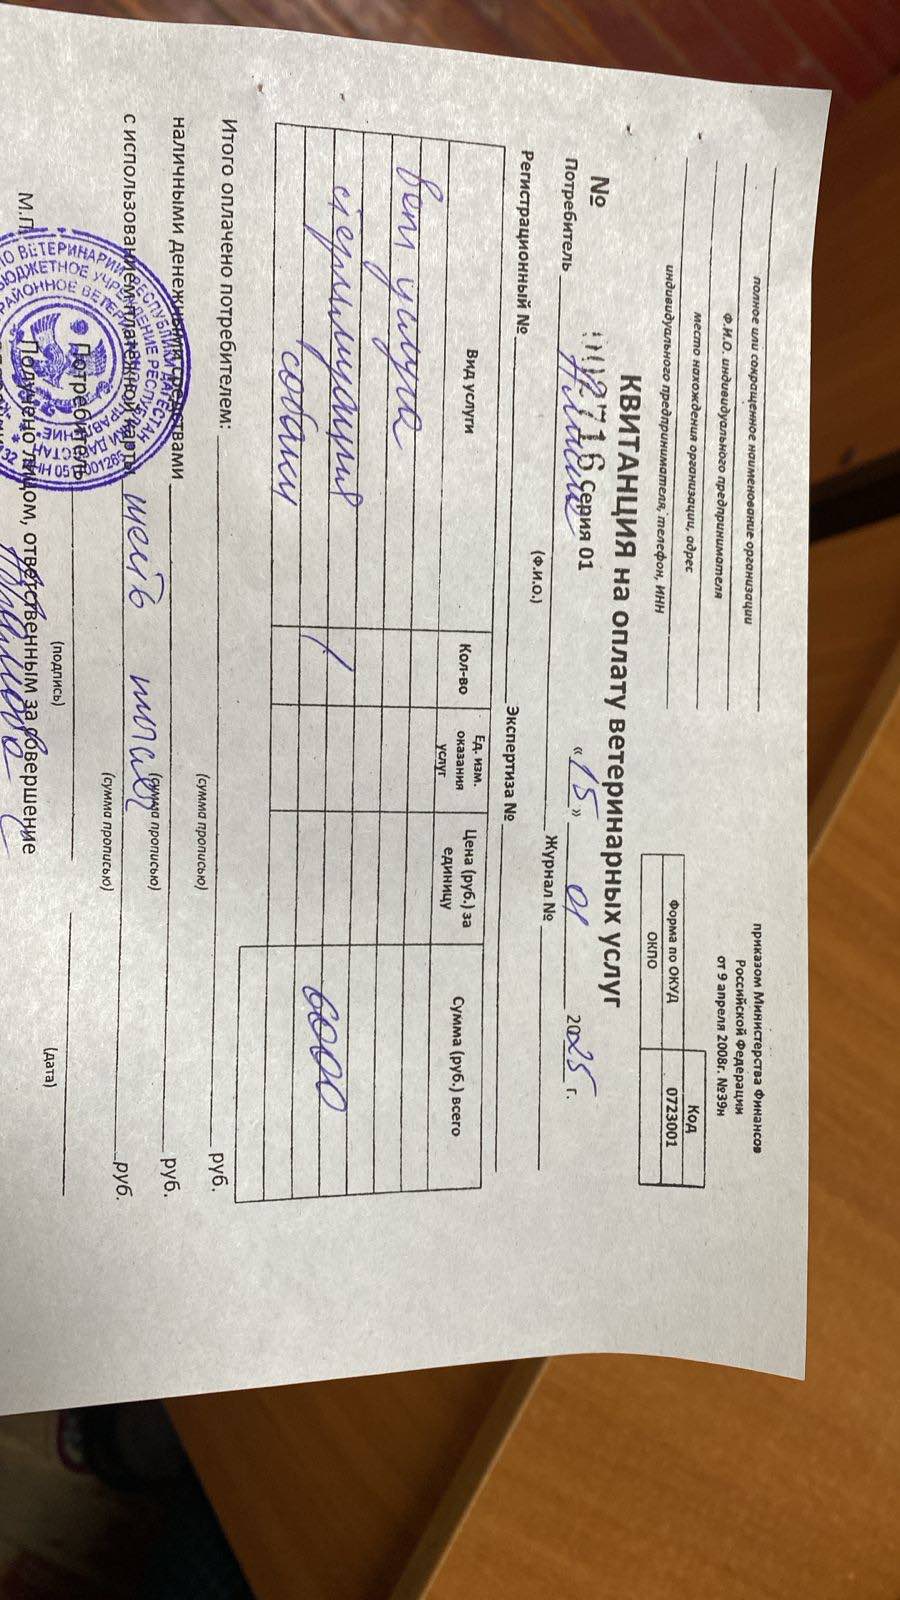 приказом Министерства Финансов
Российской Федерации
от 9 апреля 2008г. №39н
полное или сокращенное наименование организации
Ф.И.О. индивидуального предпринимателя
место нахождения организации, адрес
индивидуального предпринимателя, телефон, ИНН
Код
Форма по ОКУД 0723001
ОКПО
КВИТАНЦИЯ на оплату ветеринарных услуг
№ 2716 Серия 01 «15» 01 2025 г.
Потребитель
(Ф.И.О.)
Журнал №
Регистрационный № Экспертиза №
Вид услуги Кол-во Ед. изм. оказания услуг Цена (руб.) за единицу Сумма (руб.) всего
Вет услуга
стерилизация 1 6000
собаки
Итого оплачено потребителем: руб.
(сумма прописью)
наличными денежными средствами руб.
(сумма прописью)
с использованием платежной карты шесть тысяч руб.
(сумма прописью)
Потребитель
(подпись) (дата)
М.П. Получено лицом, ответственным за совершение